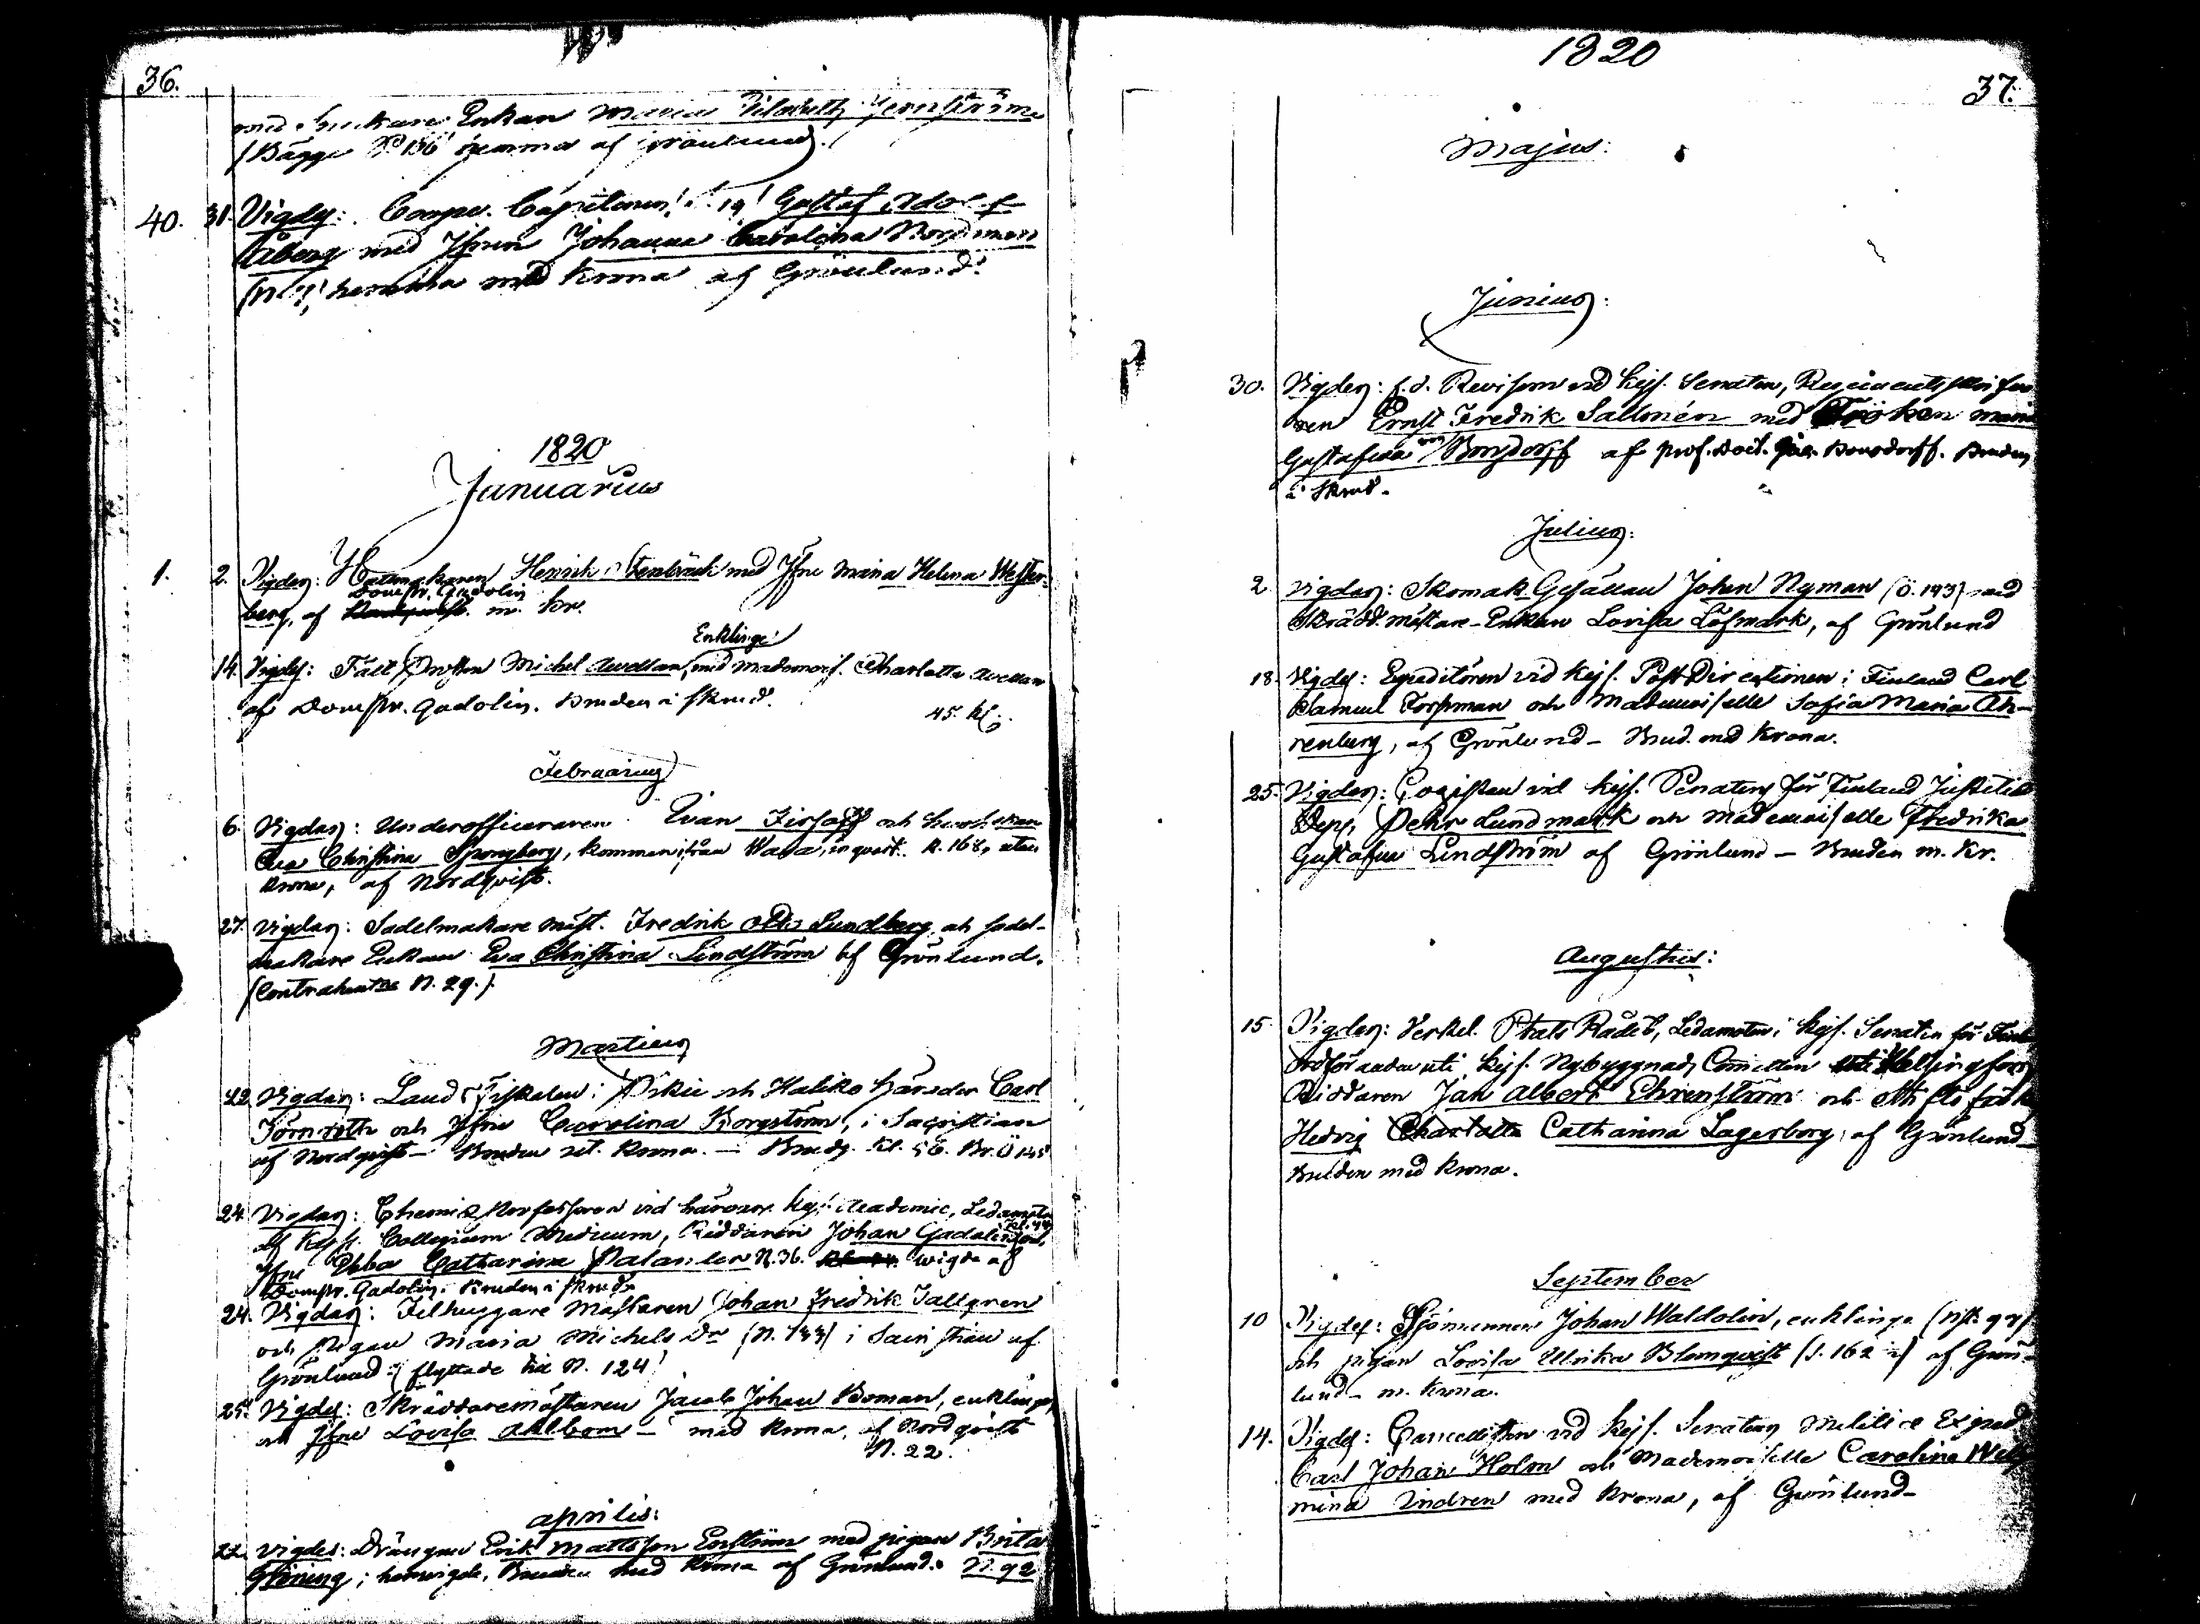 36.
Enkan Maria
(Bägge N 156 hemma af Grönlund)
40. 31. Vigdes: Gustaf Adolf
Åberg med Jfrun Johanna Carolina Nordman
hemma med Krona af Grönlund.
1820
Januarius
1. 2. Vigdes: Hattmakaren Henrik Stenbäck med Jfru Maria Helena Wester-
Dompr. Gadolin
berg, af m. kr.
Enklinge
14. Vigdes: Fält Michel Avellan, med Mademois. Charlotta Avellan
af Dompr. Gadolin. Bruden i skrud.
45. Kl.
Februarius
6. Vigdes: Underofficeraren Ivan Firsoff och
Eva Christina Spongberg, kommen ifrån Wasa, in quart. K. 168, utan
krona, af Nordqvist.
27. Vigdes: Sadelmakare mäst. Fredrik Otto Lundberg och sadel-
makare Enkan Eva Christina Lindström af Grönlund.
(Contrahenterne N. 29.)
Martius
12. Vigdes: Lands Fiskalen i Pikie och Haliko härader Carl
Törnroth och Jfru Carolina Borgström, i Sacristian
af Nordqvist - Bruden ut. Krona. - Brudg. Kl. 56. Br. Ö 145
24. Vigdes: Chemiæ Professoren vid härvar. Kejs. Academie, Ledamoten
af Kejs. Collegium Medicum, Riddaren Johan Gadolin och
Jfru Ebba Catharina Palander N. 36. wigde af
Dompr. Gadolin. Bruden i skrud.
24. Vigdes: Filhuggare Mästaren Johan Fredrik Tallgren
och Pigan Maria Michels Dr (N. 133) i Sacristian af
Grönlund: (flyttade til N. 124)
25. Vigdes: Skräddaremästaren Jacob Johan Boman, enkling,
och Jfru Lovisa Ahlbom - med Krona, af Nordqvist
N. 22.
Aprilis:
22. Vigdes: Drängen Erik Mattsson Enström med pigan Brita
Grening; hemvigde, Bruden med Krona af Grönlund. N. 92
1820
37.
Majus:
Junius:
30. Vigdes: f.d. Revisorn vid Kejs. Senaten,
Ernst Fredrik Sallmén med Fröken Maria
Gustafva von Bonsdorff af prof. Doct. Gab. Bonsdorff. Bruden
i skrud.
Julius:
2. Vigdes: Skomak. Gesällen Johan Nyman (Ö. 143) med
Skrädd. mästare-Enkan Lovisa Löfmark, af Grönlund
18. Vigdes: Expeditören vid Kejs. Post Directionen i Finland Carl
Samuel Forsman och Mademoiselle Sofia Maria Ah-
renberg, af Grönlund - Brud. med Krona.
25. Vigdes: Copisten vid Kejs. Senatens för Finland Justitie
Dep. Pehr Lundmark och Mademoiselle Fredrika
Gustafva Lindström af Grönlund - Bruden m. Kr.
Augustus:
15. Vigdes: Verkel. Stats Rådet, Ledamoten i Kejs. Senaten för Finl.
Ordföranden uti Kejs. Nybyggnads Comitten uti Helsingfors
Riddaren Jan Albert Ehrenström och Stiftsfrök.
Hedvig Charlotta Catharina Lagerborg, af Grönlund -
Bruden med Krona.
September
10 Vigdes: Sjömannen Johan Waldolin, enklinge
och pigan Lovisa Ulrika Blomqvist (S. 162 a) af Grön-
lund - m. Krona.
14. Vigdes: Cancellisten vid Kejs. Senatens Militie Exped.
Carl Johan Holm och Mademoiselle Carolina Wilhel-
mina Indren med Krona, af Grönlund -